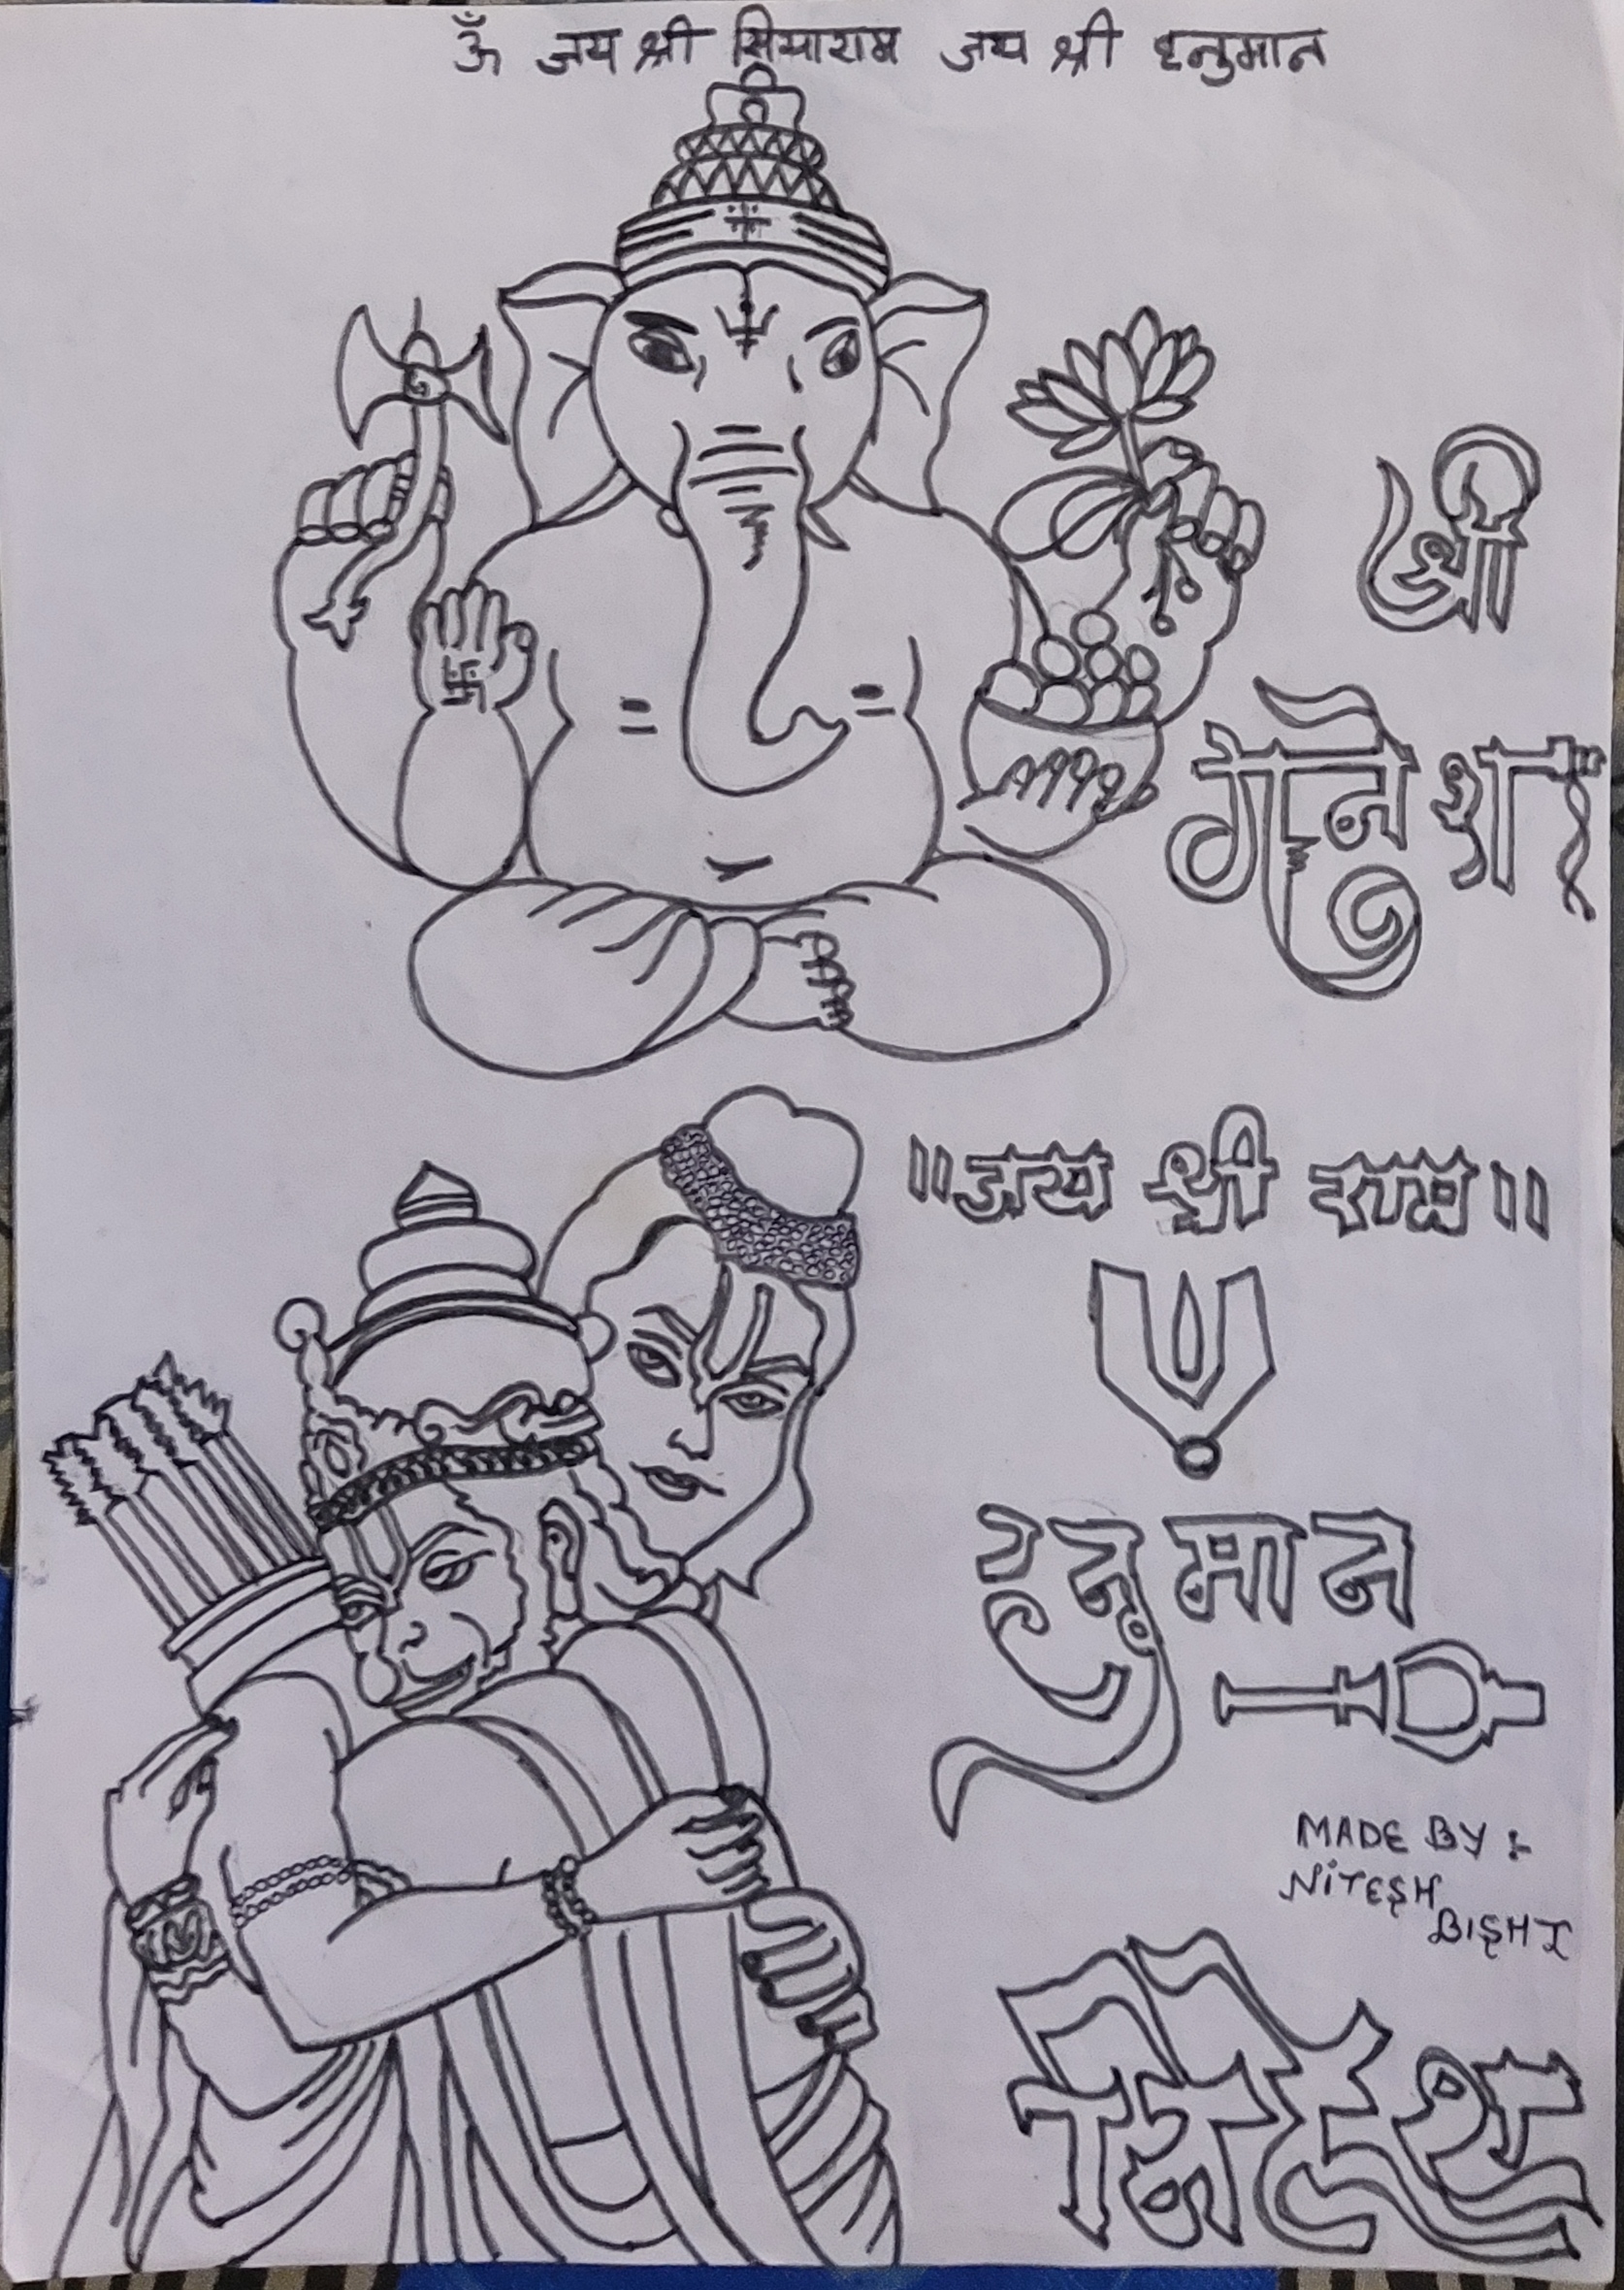 ॐ जय श्री सियाराम जय श्री हनुमान
श्री
गनेश
"जय श्री राम"
हनुमान
MADE BY :-
NITESH
BISHT